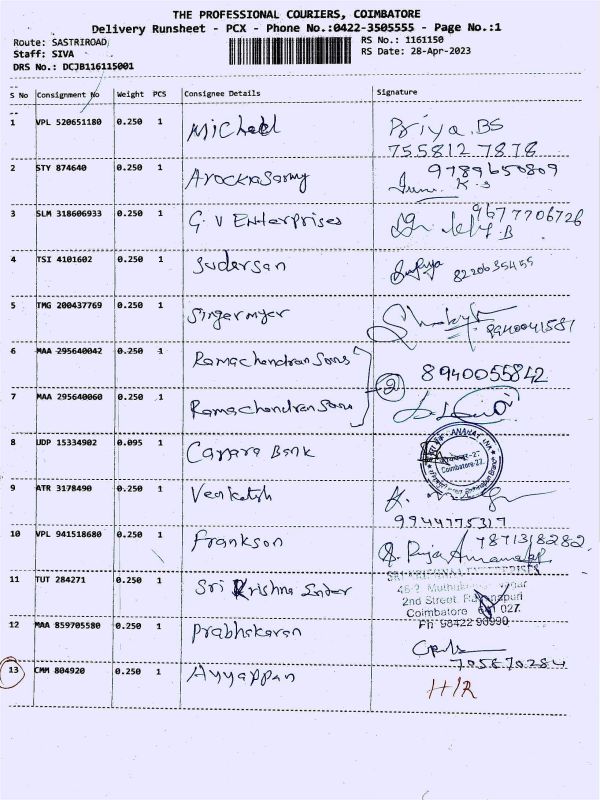 THE PROFESSIONAL COURIERS, COIMBATORE
Delivery Runsheet - PCX - Phone No.:0422-3505555 - Page No.:1
Route: SASTRIROAD RS No.: 1161150
Staff: SIVA RS Date: 28-Apr-2023
DRS No.: DCJB116115001
S No Consignment No Weight PCS Consignee Details Signature
1 VPL 520651180 0.250 1 Michael Priya. BS
755812 7878
2 STY 874640 0.250 1 Arockiasamy 9789650809
K. S
3 SLM 318606933 0.250 1 G. V Enterprises 9677706726
4 TSI 4101602 0.250 1 Sudersan 8220635455
5 TMG 200437769 0.250 1 Singermyer 9940041581
6 MAA 295640042 0.250 1 Ramachandran Sons 8940055842
7 MAA 295640060 0.250 1 Ramachandran Sons 2
8 UDP 15334902 0.095 1 Canara Bank
Coimbatore-27
9 ATR 3178490 0.250 1 Venkatesh K.
9944775317
10 VPL 941518680 0.250 1 Frankson 7871318282
11 TUT 284271 0.250 1 Sri Krishna Enter SRI KRISHNA ENTERPRISES
2nd Street
Coimbatore 641 027.
Ph 98422 90990
12 MAA 859705580 0.250 1 Prabhakaran
705670284
13 CMM 804920 0.250 1 Ayyappan H/R